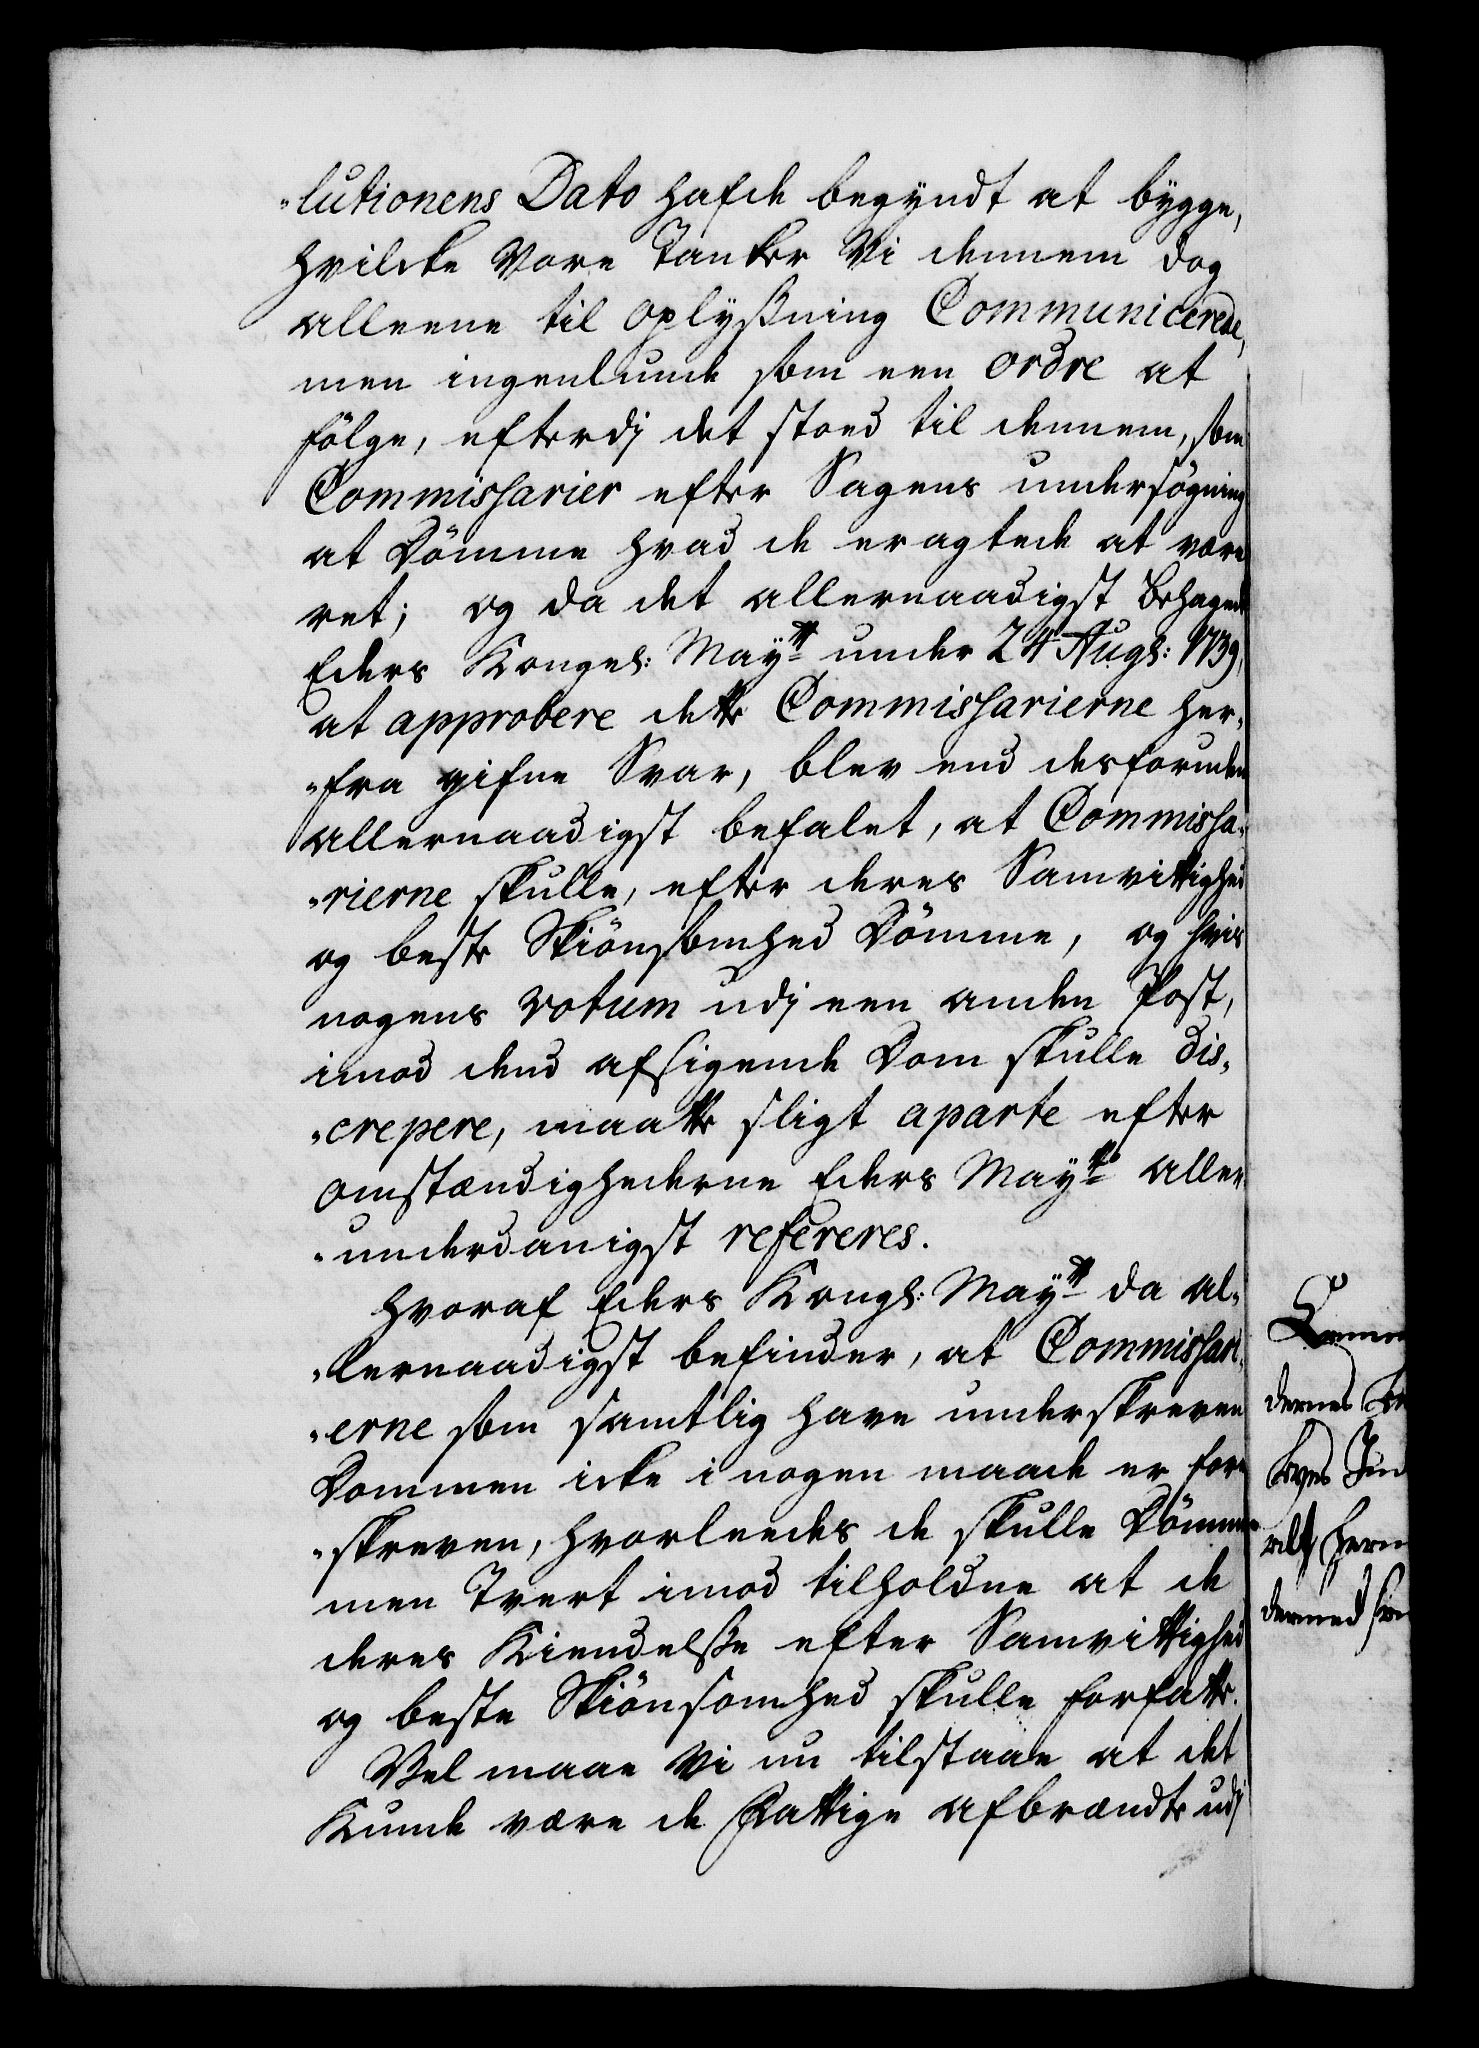 „lutionens Dato hafde begyndt at bygge,
hvilcke Vore Tanker Vi dennem dog
alleene til oplyßning Communicerede,
men ingenlunde som een ordre at
følge, efterdj det stoed til dennem, som
Commissarier efter Sagens undersøgning
at Dömme hvad de eragtede at være
ret; og da det allernaadigst behagede
Eders Kongel: Mayt under 24 Augs: 1739,
at approbere dette Commissarierne her„
„fra gifne Svar, blev end desforuden
allernaadigst befalet, at Commissa„
„rierne skulle, efter deres Samvittighed
og beste Skiönsomhed Dömme, og hvis
nogens votum udj een anden Post,
imod dend afsigende Dom skulle dis„
„crepere, maatte sligt aparte efter
omstændighederne Eders Mayt aller
„underdanigst refereres.
Hvoraf Eders Kongl: Mayt da al„
„lernaadigst befinder, at Commissari„
„erne som samtlig have underskreven
Dommen icke i nogen maade er fore
„skreven, hvorleedes de skulle Dömme
men Tvert imod tilholdne at de
deres Kiendelße efter Samvittighed
og beste Skiönsomhed skulle forfatte.
Vel maae Vi nu tilstaae at det
Kunde være de Fattige afbrændte udj
dernes
dermed